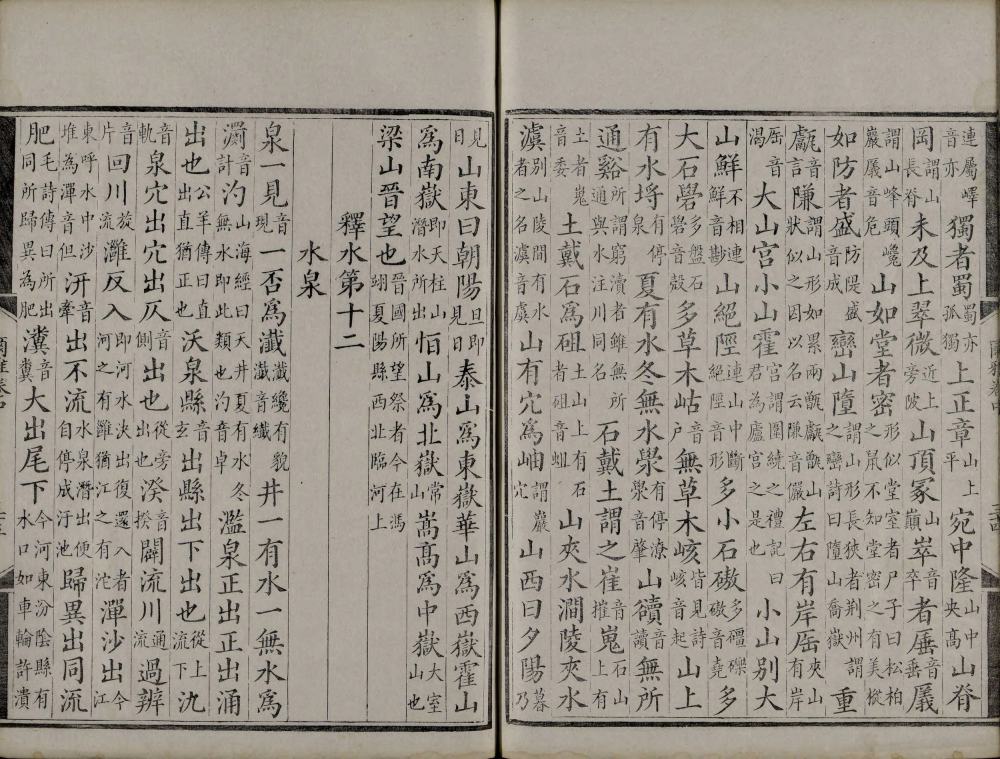 連屬嶧音亦獨者蜀蜀亦孤獨上正章山上平宛中隆山中央高山脊
岡謂山長脊未及上翠微近上旁陂山頂冢山巔崒者厜㕒
謂山峰頭巉巖㕒音危山如堂者密形似堂室者尸子曰松柏之鼠不知堂密之有美樅
如防者盛防隄盛音成巒山墮謂山形長狹者荊州謂之巒詩曰墮山喬嶽重
甗音言隒謂山形如累兩甗甗甑山狀似之因以名云隒音儼左右有岸厒夾山有岸
厒音渴大山宮小山霍宮謂圍繞之禮記曰君為廬宮之是也小山別大
山鮮不相連鮮音尠山絕陘連山中斷絕陘音形多小石磝多礓礫磝音堯多
大石礐多盤石礐音殼多草木岵戶無草木峐皆見詩峐音起山上
有水埒有停泉夏有水冬無水澩有停潦澩音肈山𧮾音讀無所
通谿所謂窮瀆者雖無所通與水注川同名石戴土謂之崔嵬石山上有
土者嵬音摧土戴石為砠土山上有石者砠音蛆山夾水澗陵夾水
澞別山陵間有水者之名澞音虞山有穴為岫謂巖穴山西曰夕陽暮乃
見日山東曰朝陽旦即見日泰山為東嶽華山為西嶽霍山
為南嶽即天柱山潛水所出恒山為北嶽常山嵩高為中嶽大室山也
梁山晉望也晉國所望祭者今在馮翊夏陽縣西北臨河上
釋水第十二
水泉
泉一見音現一否為瀸瀸纔有貌瀸音纖井一有水一無水為
瀱音計汋山海經曰天井夏有水冬無水即此類也汋音卓濫泉正出正出涌
出也公羊傳曰直出直猶正也沃泉縣音玄出縣出下出也從上流下氿
音軌泉穴出穴出仄音側出也從旁出也湀音揆闢流川通流過辨
音片回川旋流灉反入即河水決出復還入者河之有灉猶江之有沱潬沙出今江
東呼水中沙堆為潬音但汧音牽出不流水泉潛出便自停成汙池歸異出同流
肥毛詩傳曰所出同所歸異為肥瀵音糞大出尾下今河東汾陰縣有水口如車輪許濆